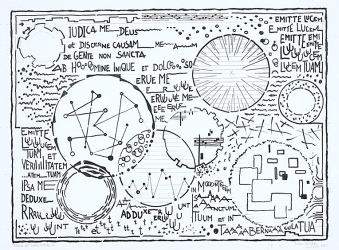 IUDICA ME DEUS
et DISCERNE CAUSAM ME A M
DE GENTE NON SANCTA
AB HOOOMINE INIQUE ET DOLOOOSO
ERUE ME
E R UE
ERUUUE ME
ME
EMITTE LUCEM
EMITTE LUCEM
EMITTE
LUCEM TUAM
EMITTE
LU
TUAM ET
VERIIITATEM
TUAM
IPSA ME
DEDUXE
RRRUUU NT
et
ADDUXE
ERUUUNT
IN MOOONTEM
SAAAANCTUM
TUUM ET IN
TAAAABERNAAACULA TUA